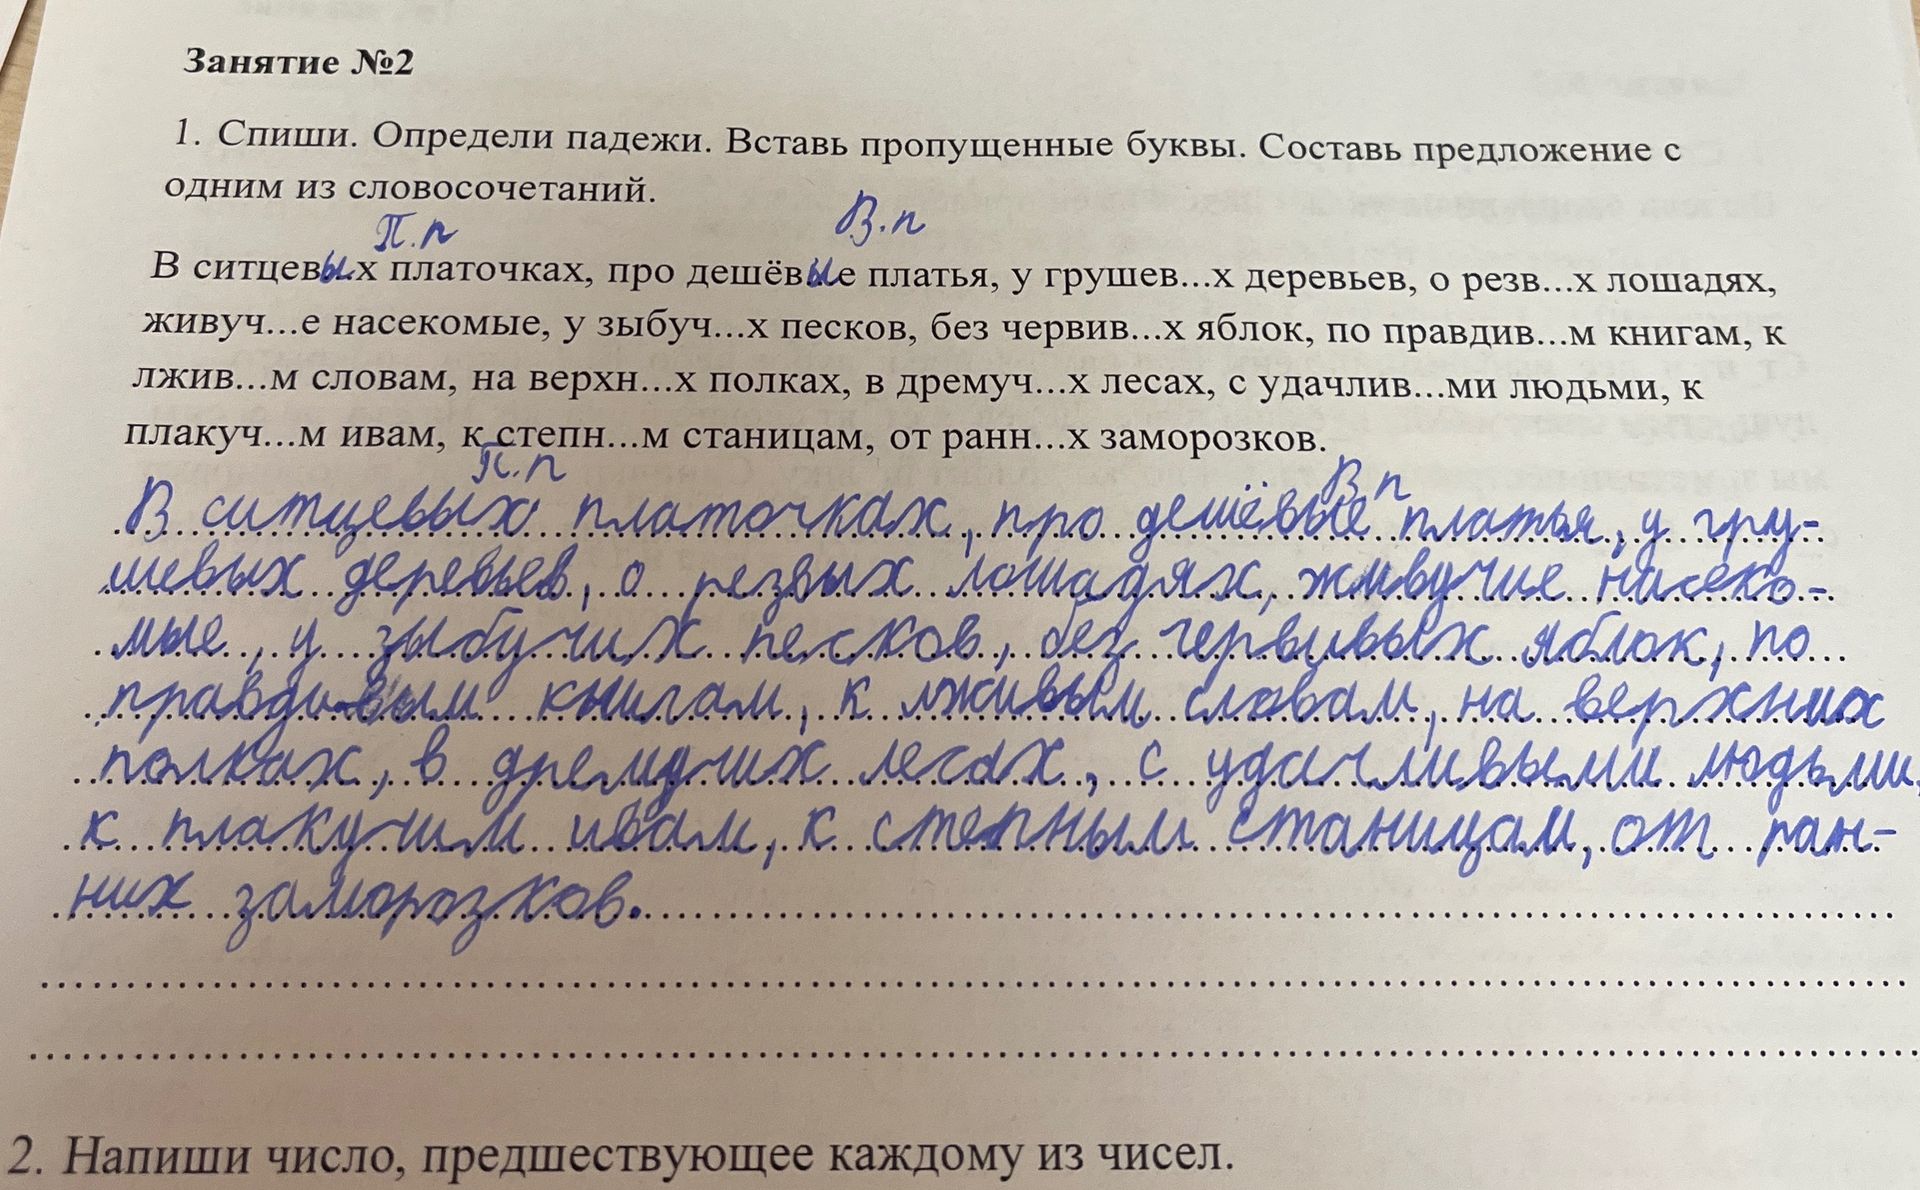 Занятие №2
1. Спиши. Определи падежи. Вставь пропущенные буквы. Составь предложение с
одним из словосочетаний.
П.п В.п
В ситцевы..х платочках, про дешёвые платья, у грушев...х деревьев, о резв...х лошадях,
живуч...е насекомые, у зыбуч...х песков, без червив...х яблок, по правдив...м книгам, к
лжив...м словам, на верхн...х полках, в дремуч...х лесах, с удачлив...ми людьми, к
плакуч...м ивам, к степн...м станицам, от ранн...х заморозков.
П.п В п
В ситцевых платочках, про дешёвые платья, у гру-
шевых деревьев, о резвых лошадях, живучие насеко-
мые, у зыбучих песков, без червивых яблок, по
правдивым книгам, к лживым словам, на верхних
полках, в дремучих лесах, с удачливыми людьми,
к плакучим ивам, к степным станицам, от ран-
них заморозков.
2. Напиши число, предшествующее каждому из чисел.